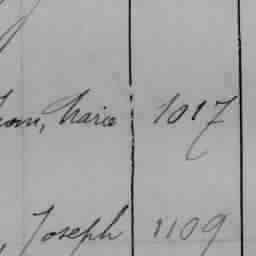 Maria 1017
, Joseph 1109